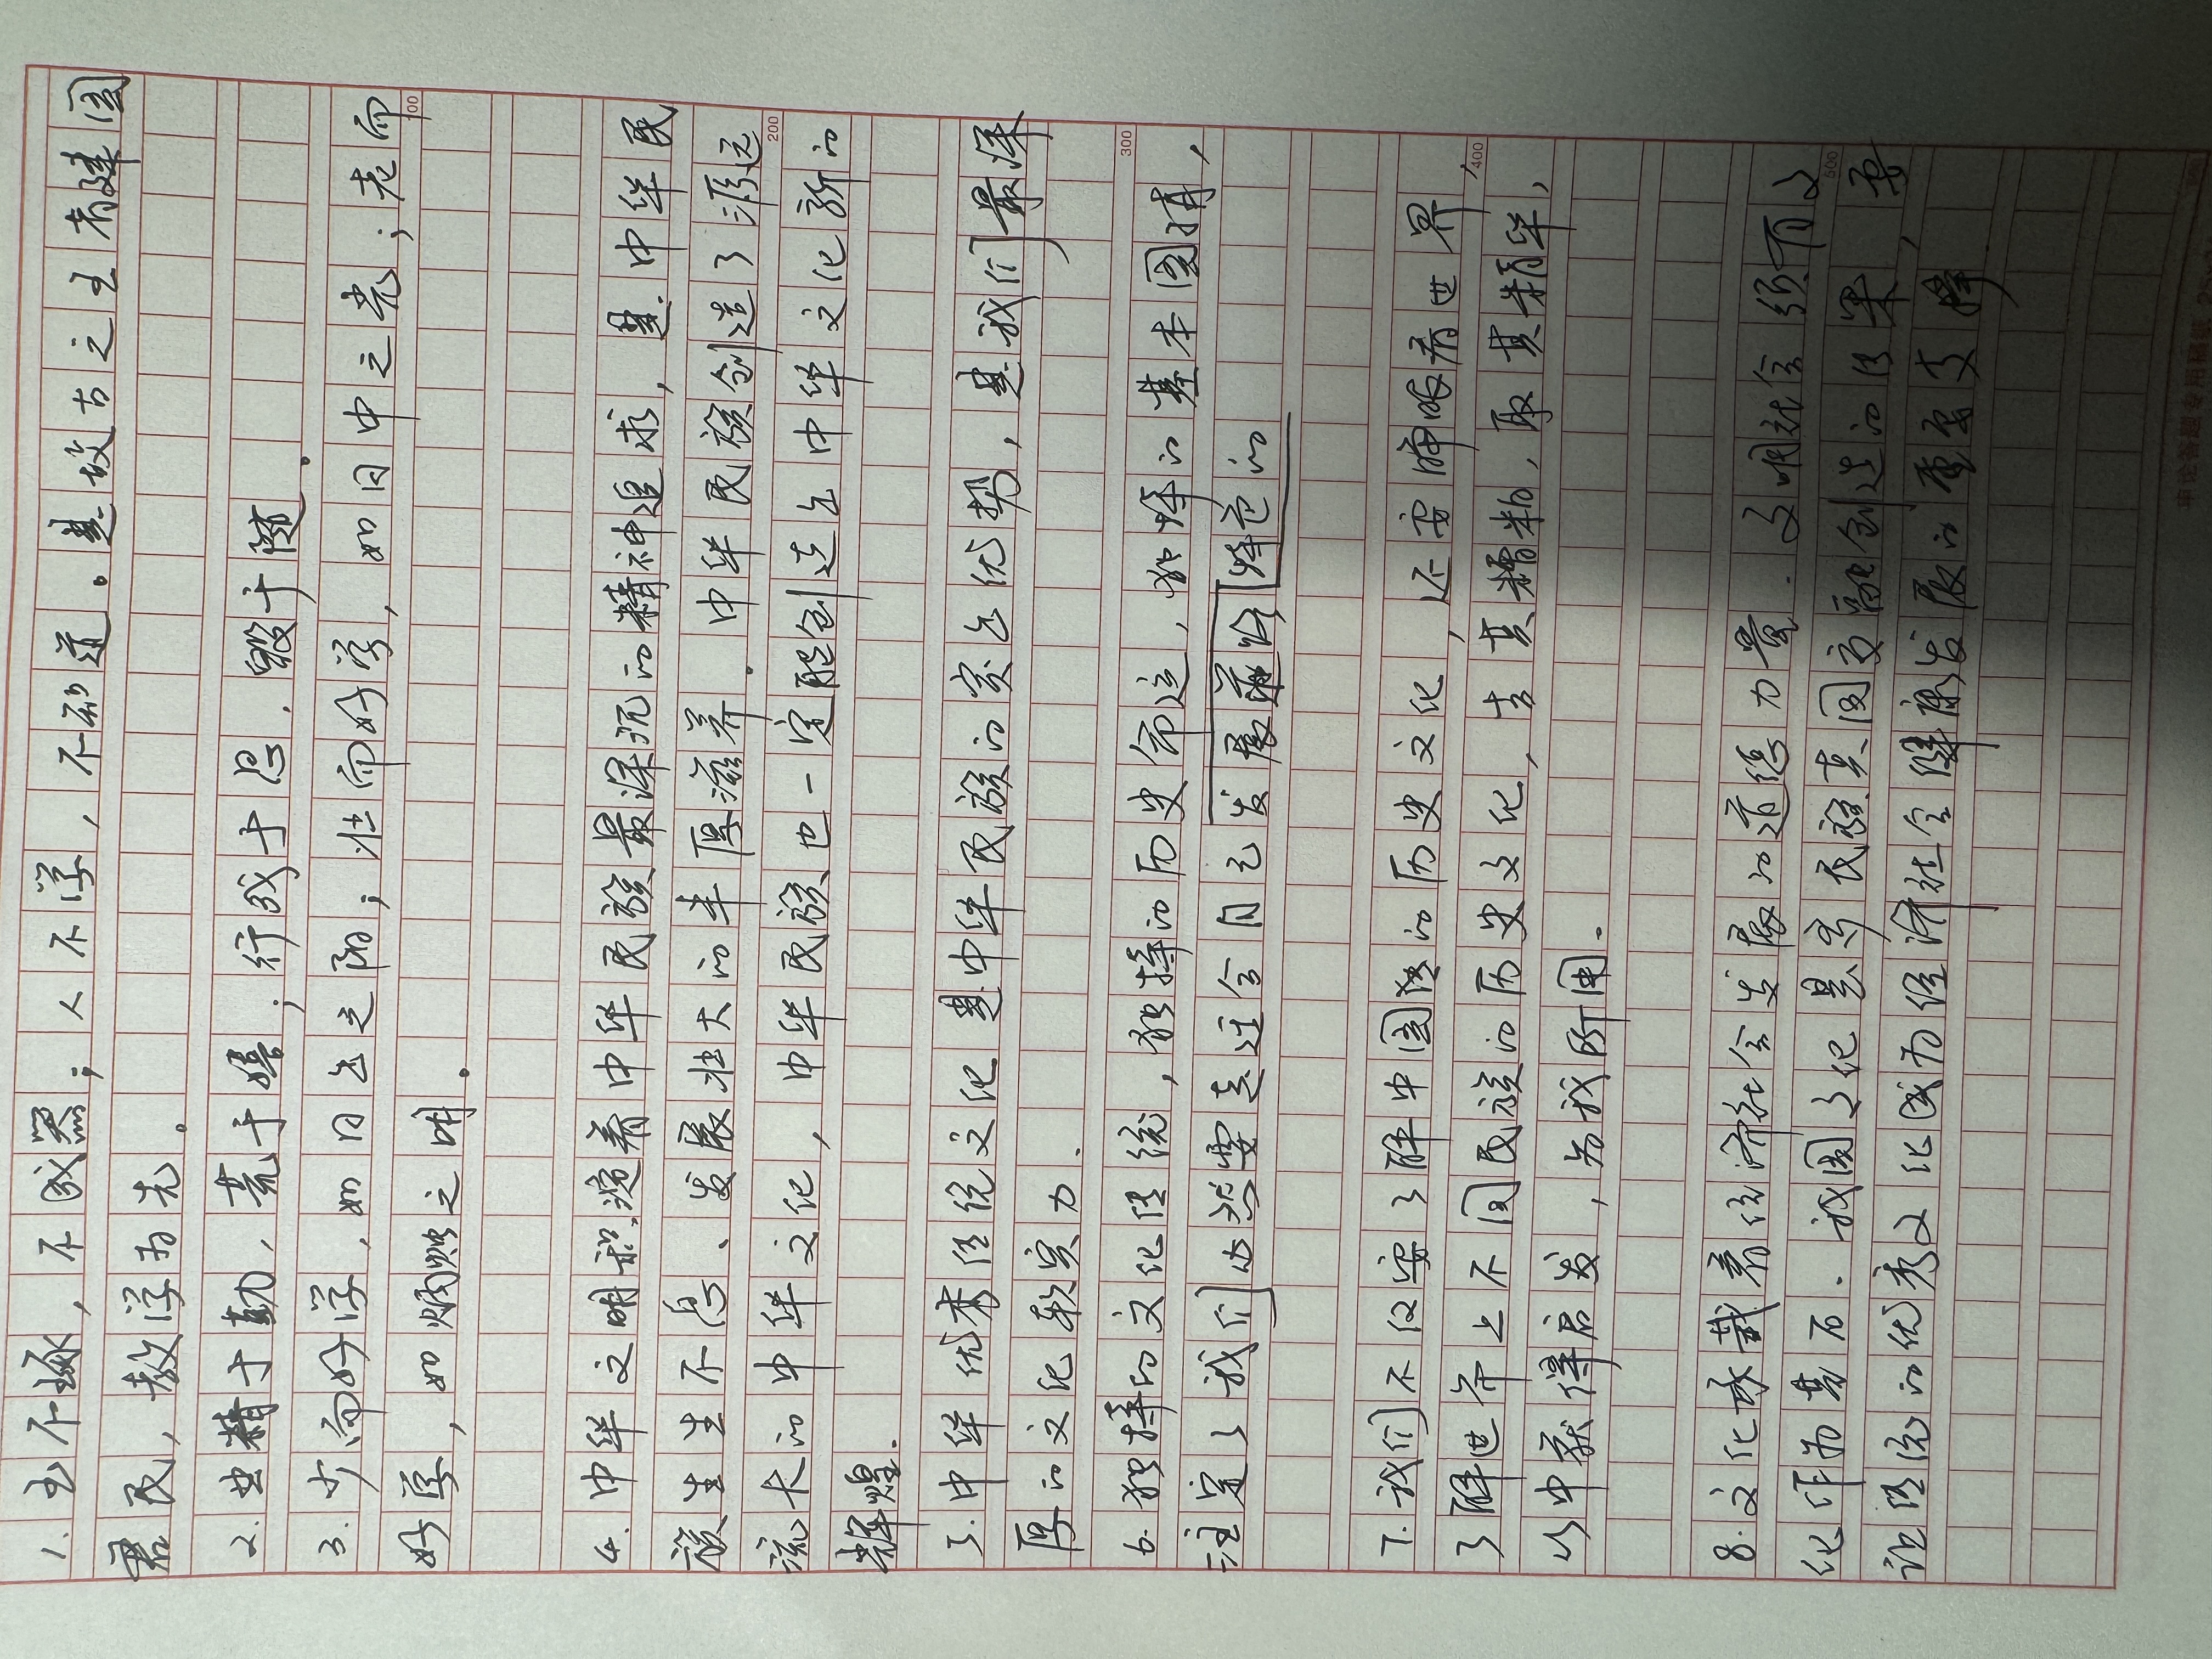 1.玉不琢，不成器；人不学，不知道。是故古之王者建国
君民，教学为先。
2.业精于勤，荒于嬉；行成于思，毁于随。
3.少而好学，如日出之阳；壮而好学，如日中之光；老而
100
好学，如炳烛之明。
4.中华文明积淀着中华民族最深沉的精神追求，是中华民
族生生不息、发展壮大的丰厚滋养。中华民族创造了源远
200
流长的中华文化，中华民族也一定能创造出中华文化新的
辉煌.
5.中华优秀传统文化是中华民族的突出优势，是我们最深
厚的文化软实力.
300
6.独特的文化传统，独特的历史命运，独特的基本国情，
注定了我们必然要走适合自己发展道路特色的
7.我们不仅要了解中国的历史文化，还要睁眼看世界，
400
了解世界上不同民族的历史文化，去其糟粕，取其精华，
从中获得启发，为我所用。
8.文化承载着经济社会发展的道德力量.文明社会须有文
500
化作为基石.我国文化是多民族共同交融创造的结果，要
让传统的优秀文化成为经济社会健康发展的重要支撑.
申论答题专用稿纸